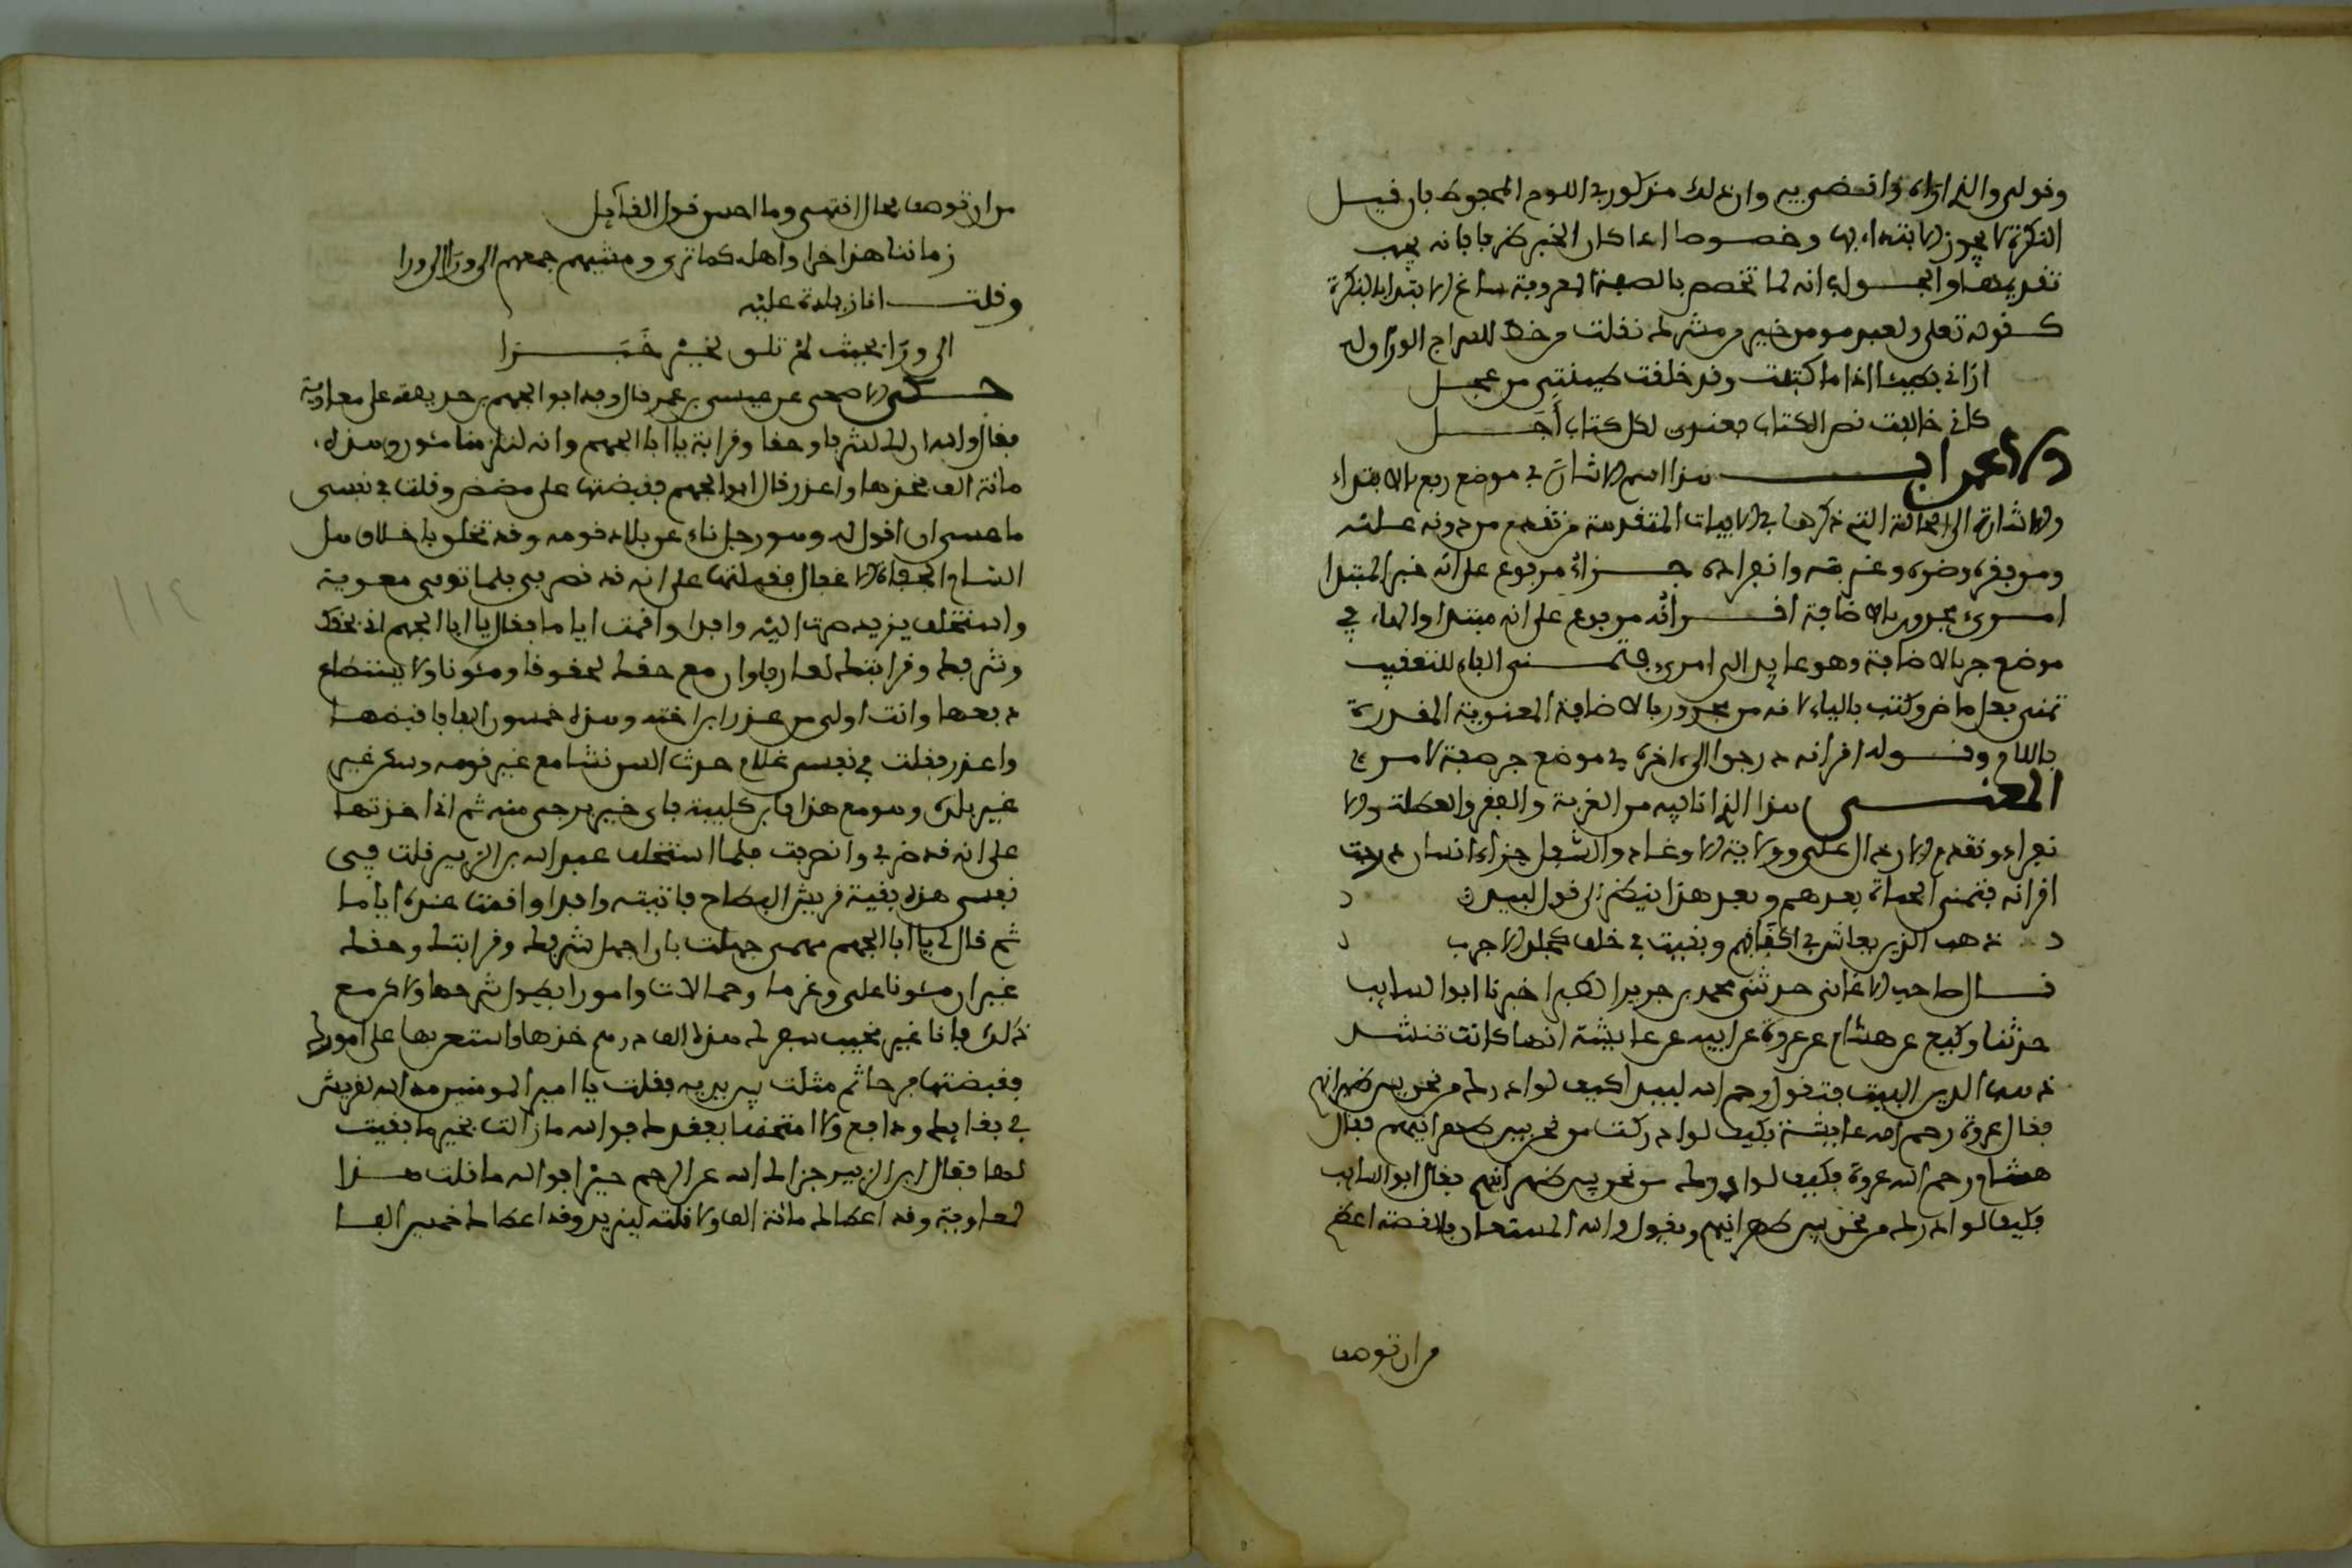 وقولي والذي اراه واقتضى به وان ذلك مذكور في اللوح المحفوظ بان قيل
النكرة لا يجوز الابتداء بها وخصوصا اذا كان الخبر ظرفا فانه يجب
تقديمها والجواب انه لما تخصص بالصفة المعروفة ساغ الابتداء بالنكرة
كقوله تعلى ولعبد مومن خير من مشرك نقلت من خط السراج الوراق له
اراني بطيئا اذا ما كتبت وقد خلقت طينتي من عجل
كاني خالفت نص الكتاب فعندي لكل كتاب أجل
والاعراب هذا اسم الاشارة في موضع رفع بالابتداء
والاشارة الى الحالة التي ذكرها في الابيات المتقدمة من تقدم من دونه عليه
ومن فقره وضره وغربته وانفراده جزاء مرفوع على انه خبر المبتدا
امرئ مجرور بالاضافة اقرانه مرفوع على انه مبتدا والهاء في
موضع جر بالاضافة وهو عايد الى امرئ فتمنى الفاء للتعقيب
تمنى فعل ماض وكتب بالياء لانه من مجرور بالاضافة المعنوية المقدرة
باللام وقوله اقرانه درجوا الى اخره في موضع جر صفة لامرئ
المعنى هذا الذي انا فيه من الغربة والفقر والعطلة والا
نفراد وتقدم الارذال علي وولاية الاوغاد والسفل جزاء انسان درجت
اقرانه فتمنى الحياة بعدهم وبعد هذا ينظر الى قول لبيد
ذهب الذين يعاش في اكنافهم وبقيت في خلف كجلد الاجرب
قال صاحب الاغاني حدثني محمد بن جرير الطبري اخبرنا ابو السايب
حدثنا وكيع عن هشام عن عروة عن ابيه عن عايشة انها كانت تنشد
ذهب الذين البيت فتقول رحم الله لبيدا كيف لو ادرك من نحن بين ظهرانيهم
فقال عروة رحم الله عايشة فكيف لو ادركت من نحن بين ظهرانيهم فقال
هشام رحم الله عروة فكيف لو ادرك من نحن بين ظهرانيهم فقال ابو السايب
فكيف لو ادرك من نحن بين ظهرانيهم ونقول والله المستعان فالقضية اعظم
من ان توصف
من ان توصف بحال انتهى وما احسن قول القايل
زماننا هذا خرا واهله كما ترى ومشيهم جمعهم الى ورا الى ورا
وقلت انا زيادة عليه
الى ورًا بحيث لم تلق بخير خَبَرا
حكى الاصمعي عن عيسى بن عمر قال وفد ابو الجهم بن حذيفة على معاوية
فقال والله ان لك لشرفا وحقا وقرابة يا ابا الجهم وانه لتلزمنا مئون وهذه
مائة الف فخذها واعذر قال ابو الجهم فقبضتها على مضض وقلت في نفسي
ما عسى ان اقول له وهو رجل ناء عن بلاد قومه وقد تخلق باخلاق اهل
الشام الجفاة الاغفال فقبلتها على انه قد قصر بي فلما توفي معوية
واستخلف يزيد صرت اليه وافدا واقمت اياما فقال يا ابا الجهم ان حقك
وشرفك وقرابتك لعارفا وان مع حقك لحقوقا ومئونا ولا يستطاع
دفعها وانت اولى من عذر ابن اخته وهذه خمسون الفا فاقبضها
واعذر فقلت في نفسي غلام حدث السن نشا مع غير قومه وسكن غير
غير بلده وهو مع هذا ابن كلبية فاي خير يرجى منه ثم اذا اخذتها
على انه قد ضر بي وانصرفت فلما استخلف عبد الله بن الزبير قلت في
نفسي هذه بقية قريش البطاح فاتيته وافدا واقمت عنده اياما
ثم قال لي يا ابا الجهم مهمى جهلت فلن اجهل شرفك وقرابتك وحقك
غير ان مئونا علي وغرما وحمالات وامورا يطول شرحها ولاكن مع
ذلك فانا غير مخيب سفرك هذه الف درهم خذها واستعن بها على امورك
فقبضتها فرحا ثم مثلت بين يديه فقلت يا امير المومنين مد الله لقريش
في بقايك ودافع ولا امتحنها بفقدك فوالله ما زالت بخير ما بقيت
لها فقال ابن الزبير جزاك الله عن الرحم خيرا فوالله ما قلت هذا
لمعاوية وقد اعطاك مائة الف ولا قلته ليزيد وقد اعطاك خمسين الفا
١١٤